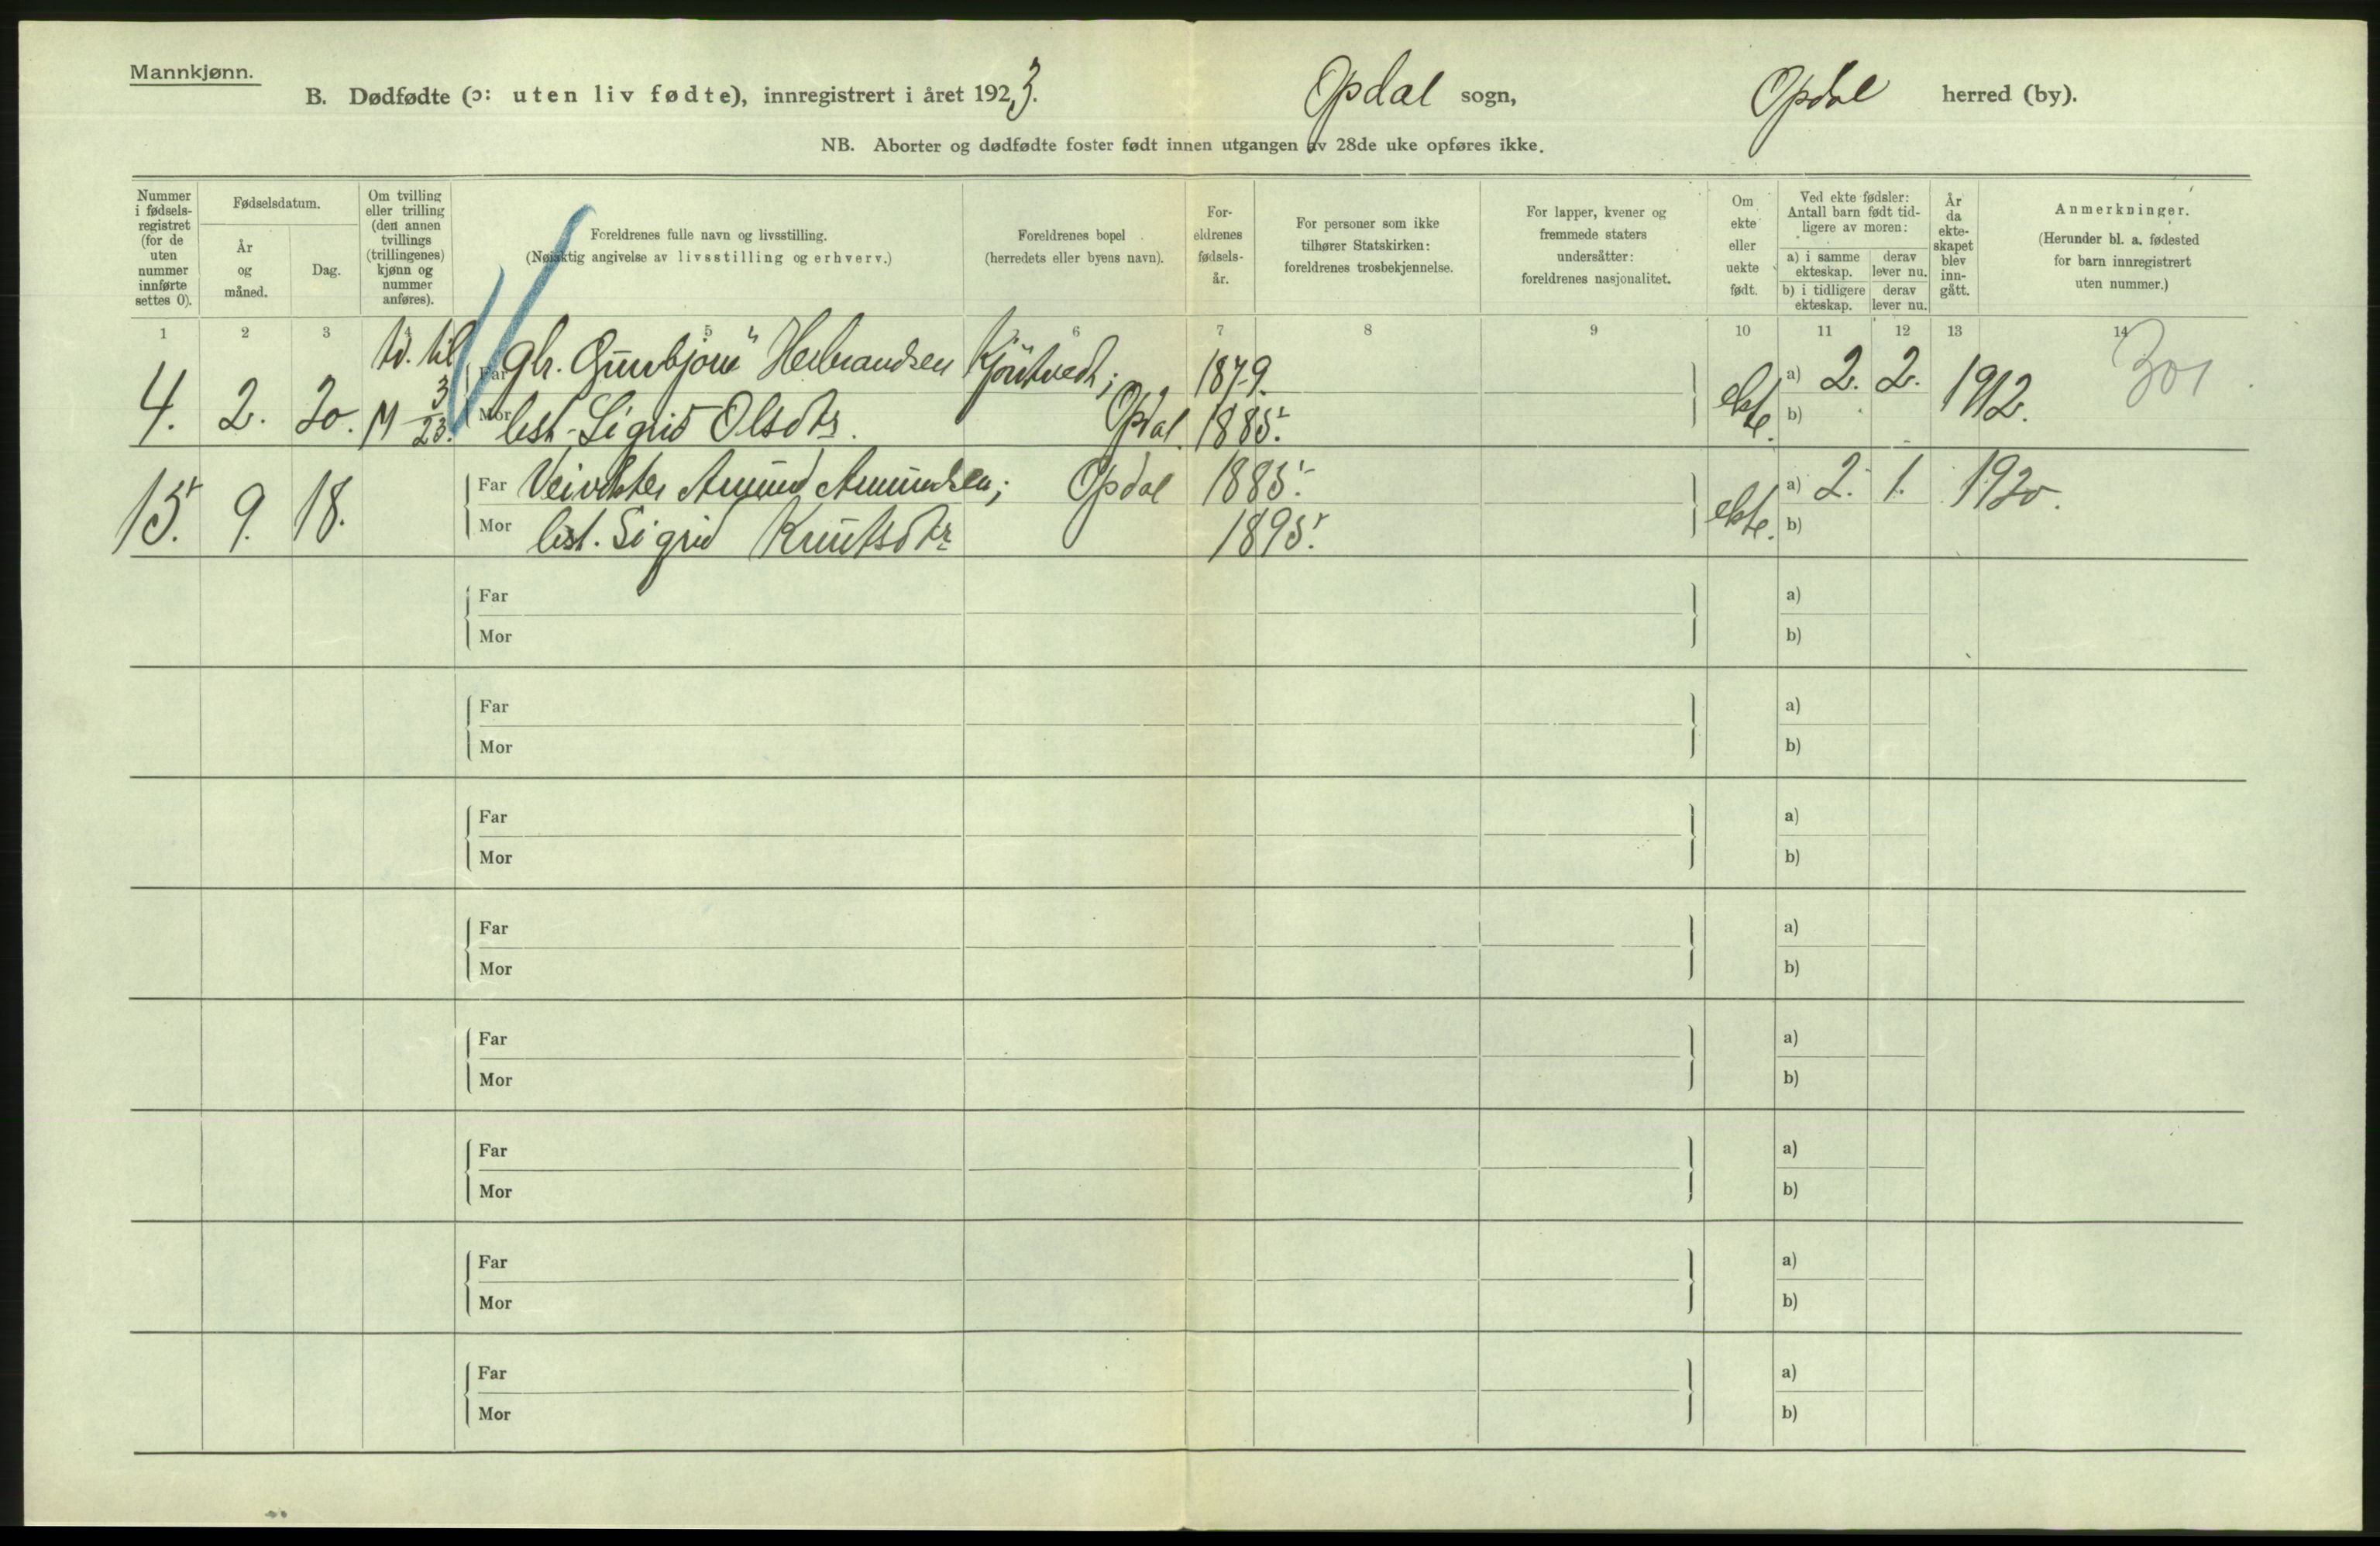 Mannkjønn.
B. Dødfødte (ɔ: uten liv fødte), innregistrert i året 1923. Opdal sogn, Opdal herred (by).
NB. Aborter og dødfødte foster født innen utgangen av 28de uke opføres ikke.
Nummer i fødsels-registret (for de uten nummer innførte settes 0).
Fødselsdatum.
År og måned.
Dag.
Om tvilling eller trilling (den annen tvillings (trillingenes) kjønn og nummer anføres).
Foreldrenes fulle navn og livsstilling.
(Nøiaktig angivelse av livsstilling og erhverv.)
Foreldrenes bopel
(herredets eller byens navn).
For-eldrenes fødsels-år.
For personer som ikke tilhører Statskirken: foreldrenes trosbekjennelse.
For lapper, kvener og fremmede staters undersåtter: foreldrenes nasjonalitet.
Om ekte eller uekte født.
Ved ekte fødsler: Antall barn født tid-ligere av moren:
a) i samme ekteskap.
derav lever nu.
b) i tidligere ekteskap.
derav lever nu.
År da ekte-skapet blev inn-gått.
Anmerkninger.
(Herunder bl. a. fødested for barn innregistrert uten nummer.)
1 2 3 4 5 6 7 8 9 10 11 12 13 14
4. 2. 20. tv. til M 3/23. Far gbr. Gunbjörn Herbrandsen Kjöntvedt; 1879. ekte. a) 2. 2. 1912. 301
Mor hst. Sigrid Olsdtr. Opdal 1885. b)
15. 9. 18. Far Veivokter Amund Amundsen; Opdal 1885. ekte. a) 2. 1. 1920.
Mor hst. Sigrid Knutsdtr 1895. b)
Far a)
Mor b)
Far a)
Mor b)
Far a)
Mor b)
Far a)
Mor b)
Far a)
Mor b)
Far a)
Mor b)
Far a)
Mor b)
Far a)
Mor b)